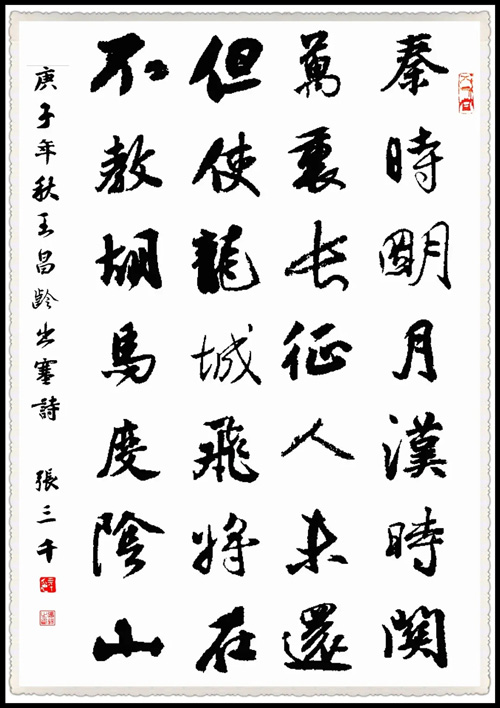 秦時明月漢時関
萬裏长征人未還
但使龍城飛将在
不教胡馬度陰山
庚子年秋王昌齡出塞詩 張三千